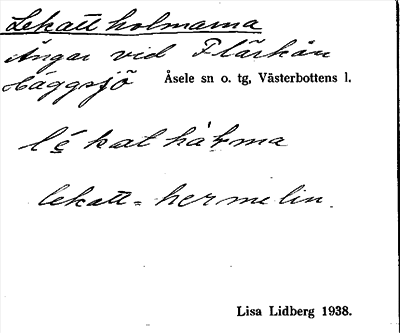 Lekattholmarna
Ängar vid Flärkån
Häggsjö Åsele sn o. tg, Västerbottens l.
lekatt = hermelin.
Lisa Lidberg 1938.